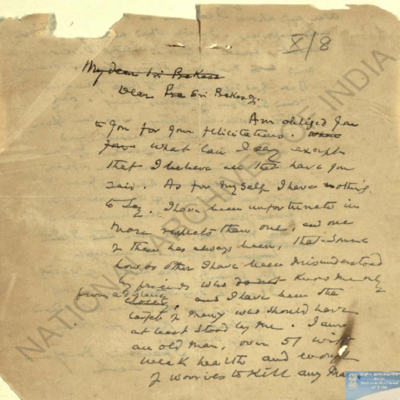 8/8
My dear Sri Prakasa
Dear Sri Prakasa,
Am obliged
to you for your felicitations.
What can I say except
that I believe all that have you
said. As for myself I have nothing
to say. I have been unfortunate in
more respects than one, and one
of them has always been, that
how or other I have been misunderstood
by friends who know me only
from a distance, and I have been the
target of many who should have
at least stood by me. I am
an old man, over 51 with
weak health and enough
of worries to kill any man
NATIONAL ARCHIVES OF INDIA